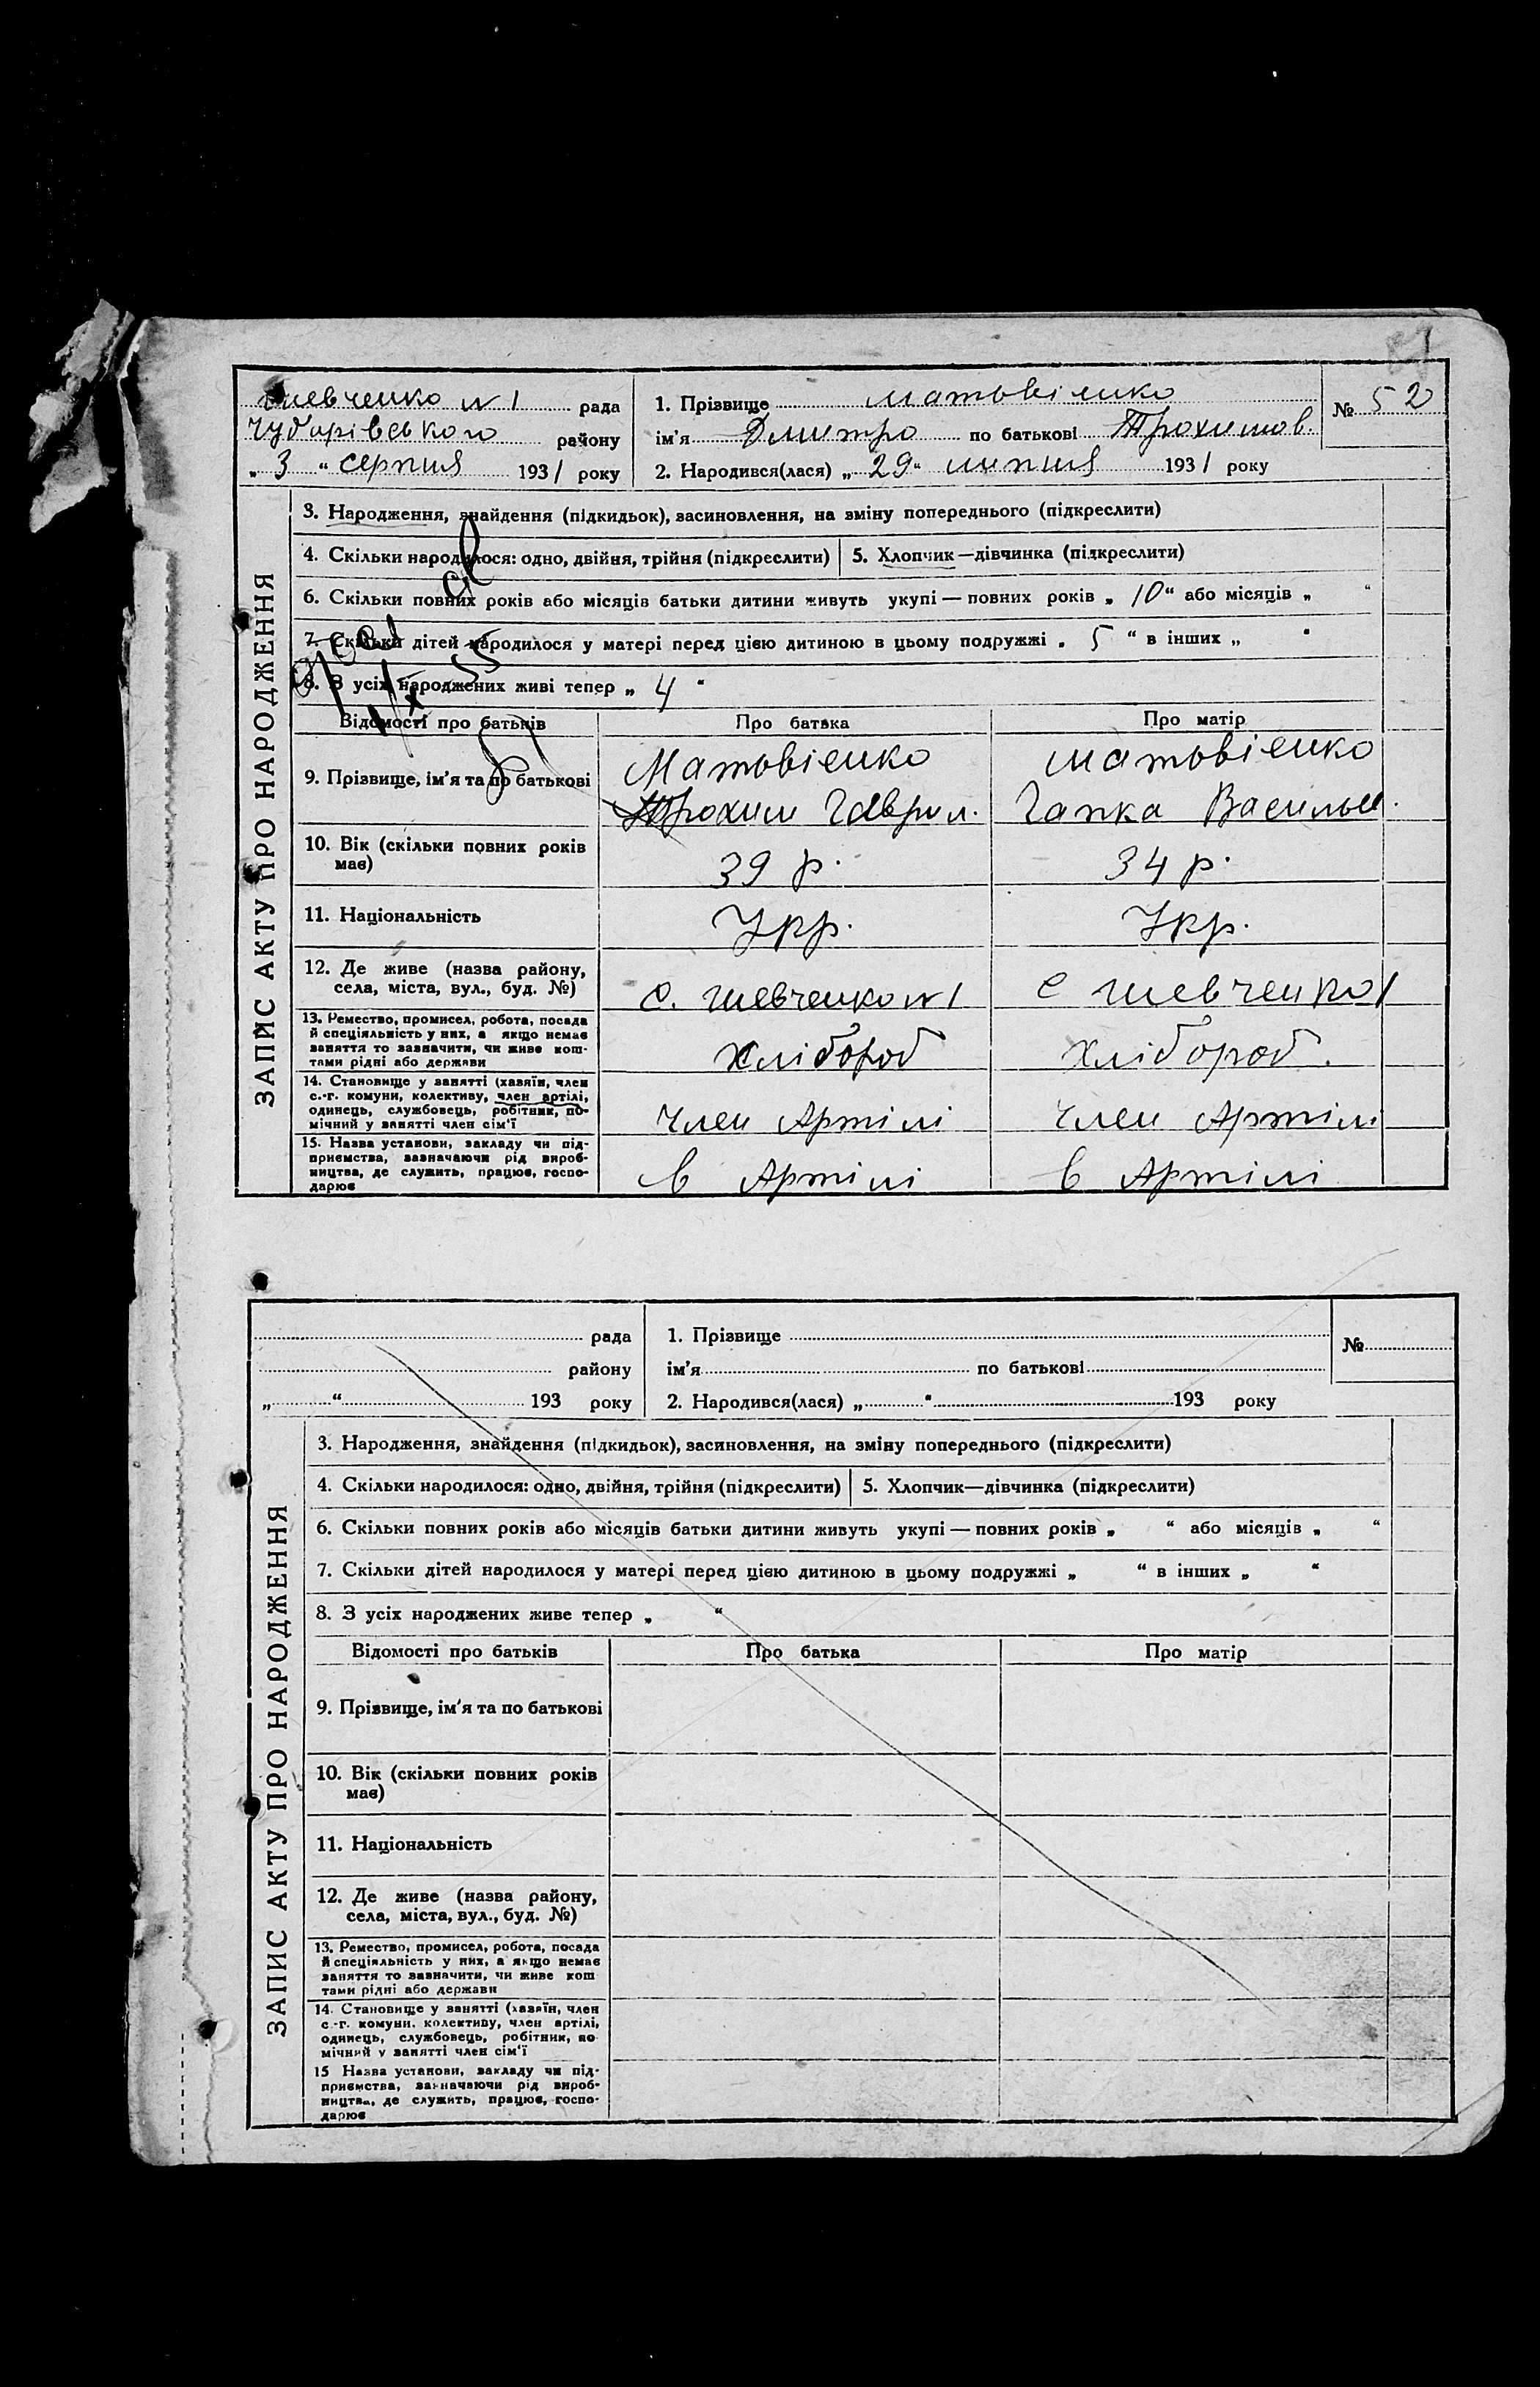 Шевченко №1 рада
Чубарівського району
„ 3 “ серпня 1931 року
1. Прізвище Матвієнко
ім'я Дмитро по батькові Трохимов.
2. Народився(лася) „ 29 “ липня 1931 року
№ 52
ЗАПИС АКТУ ПРО НАРОДЖЕННЯ
3. Народження, знайдення (підкидьок), засиновлення, на зміну попереднього (підкреслити)
4. Скільки народилося: одно, двійня, трійня (підкреслити) 5. Хлопчик—дівчинка (підкреслити)
6. Скільки повних років або місяців батьки дитини живуть укупі — повних років „ 10 “ або місяців „ “
7. Скільки дітей народилося у матері перед цією дитиною в цьому подружжі „ 5 “ в інших „ “
8. З усіх народжених живі тепер „ 4 “
Відомості про батьків Про батька Про матір
9. Прізвище, ім'я та по батькові
Матвієнко
Трохим Гаврил.
Матвієнко
Гапка Васильє.
10. Вік (скільки повних років
має)
39 р. 34 р.
11. Національність Укр. Укр.
12. Де живе (назва району,
села, міста, вул., буд. №)
с. Шевченко №1 с Шевченко 1
13. Ремество, промисел, робота, посада
й спеціяльність у них, а якщо немає
заняття то зазначити, чи живе кош-
тами рідні або держави
хлібороб хлібороб.
14. Становище у занятті (хазяїн, член
с.-г. комуни, колективу, член артілі,
одинець, службовець, робітник, по-
мічний у занятті член сім'ї
Член Артілі Член Артілі
15. Назва установи, закладу чи під-
приємства, зазначаючи рід вироб-
ництва, де служить, працює, госпо-
дарює
в Артілі в Артілі
рада
району
„ “ 193 року
1. Прізвище
ім'я по батькові
2. Народився(лася) „ “ 193 року
№
ЗАПИС АКТУ ПРО НАРОДЖЕННЯ
3. Народження, знайдення (підкидьок), засиновлення, на зміну попереднього (підкреслити)
4. Скільки народилося: одно, двійня, трійня (підкреслити) 5. Хлопчик—дівчинка (підкреслити)
6. Скільки повних років або місяців батьки дитини живуть укупі — повних років „ “ або місяців „ “
7. Скільки дітей народилося у матері перед цією дитиною в цьому подружжі „ “ в інших „ “
8. З усіх народжених живе тепер „ “
Відомості про батьків Про батька Про матір
9. Прізвище, ім'я та по батькові
10. Вік (скільки повних років
має)
11. Національність
12. Де живе (назва району,
села, міста, вул., буд. №)
13. Ремество, промисел, робота, посада
й спеціяльність у них, а якщо немає
заняття то зазначити, чи живе кош
тами рідні або держави
14. Становище у занятті (хазяїн, член
с.-г. комуни, колективу, член артілі,
одинець, службовець, робітник, по
мічний у занятті член сім'ї
15 Назва установи, закладу чи під-
приємства, зазначаючи рід вироб-
ництва, де служить, працює, госпо-
дарює